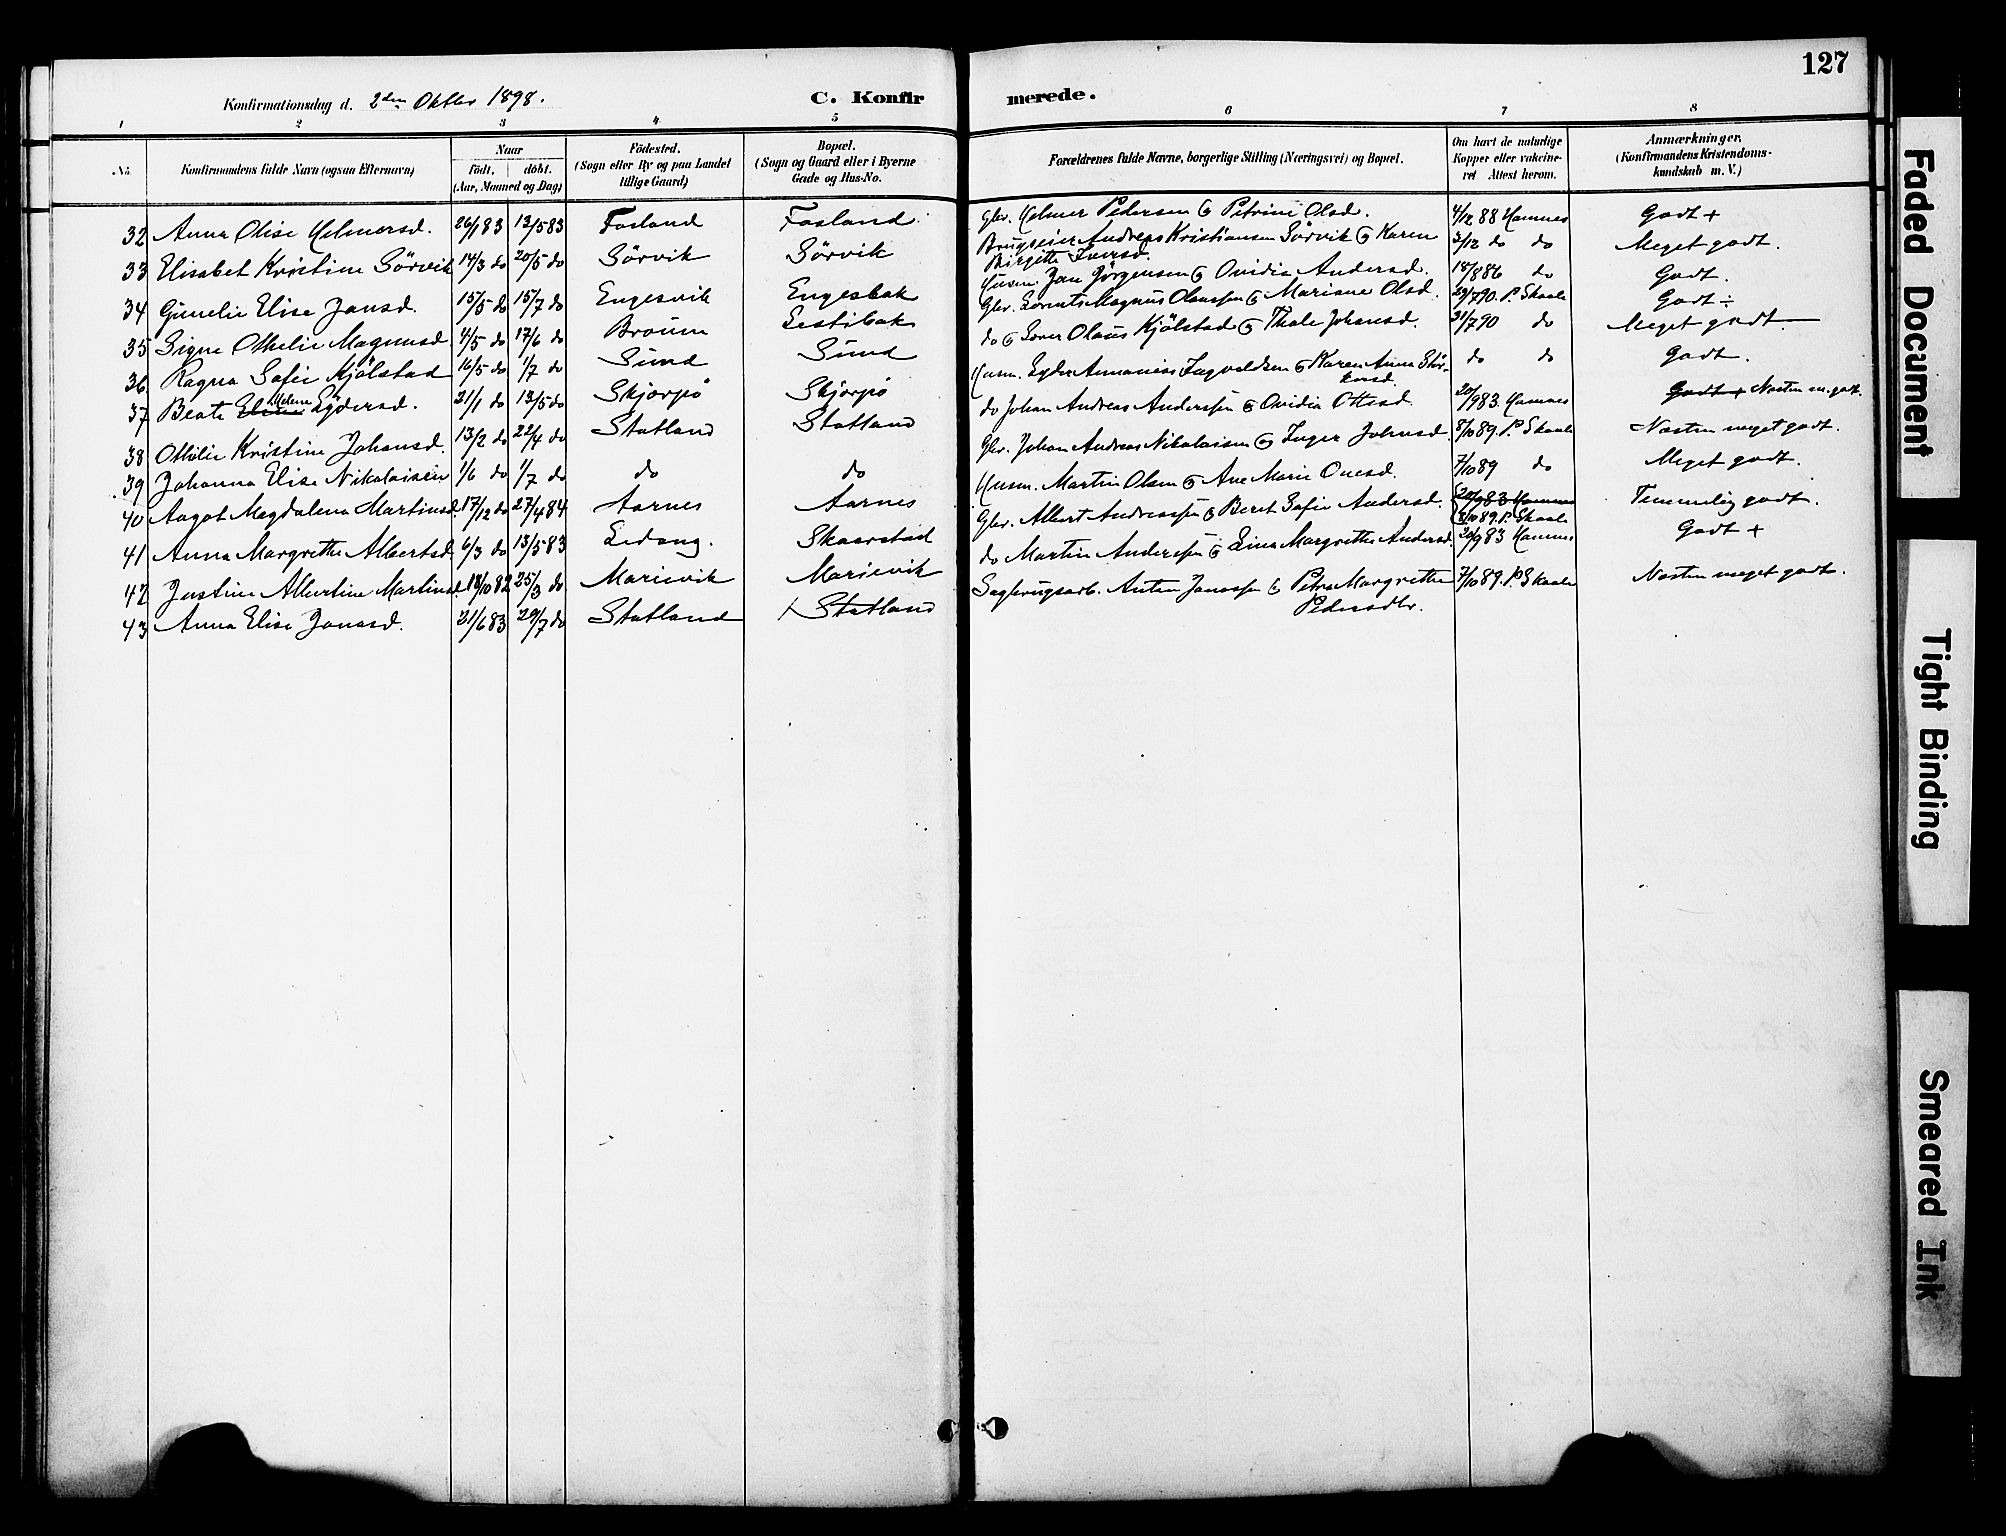 127
Konfirmationsdag d. 2den Oktbr 1898.
C. Konfir
merede.
1 2 3 4 5 6 7 8
No. Konfirmandens fulde Navn (ogsaa Efternavn) Naar Födt, döbt. (Aar, Maaned og Dag) Födested. (Sogn eller By og paa Landet tillige Gaard) Bopæl. (Sogn og Gaard eller i Byerne Gade og Hus-No. Forældrenes fulde Navne, borgerlige Stilling (Næringsvei) og Bopæl. Om havt de naturlige Kopper eller vakcineret Attest herom. Anmærkninger. (Konfirmandens Kristendomskundskab m. V.)
32 Anna Olise Helmersd. 26/1 83 13/5 83 Fosland Fosland Gbr. Helmer Pedersen & Petrine Olsd. 4/12 88 Hamnes Godt +
33 Elisabet Kristine Sörvik 14/3 do 20/5 do Sörvik Sörvik Brugseier Andreas Kristiansen Sörvik & Karen 3/12 do do Meget godt.
Birgitte Iversd.
34 Gunelie Elise Jansd. 15/5 do 15/7 do Engesvik Engesbak Husm. Jan Jörgensen & Ovidia Andersd. 18/8 86 do Godt.
35 Signe Othelie Magnusd 4/5 do 17/6 do Broum Lestibak Gbr. Lorents Magnus Olaussen & Mariane Olsd. 29/7 90. P. Skaale Godt ÷
36 Ragna Sofie Kjölstad 16/5 do 1/7 do Sund Sund do Olaus Kjölstad & Thale Johansd. 31/7 90 do Meget godt
37 Beate Helene Lydersd. 21/1 do 13/5 do Skjærpö Skjærpö Husm. Lyder Annanias Ingvaldsen & Karen Anna Stör- do do Godt.
kersd.
38 Othilie Kristine Johansd. 13/2 do 22/4 do Statland Statland do Johan Andreas Anderssen & Ovidia Ottesd. 20/9 83. Hamnes Godt + Næsten m. godt.
39 Johanna Elise Nikolaisen 1/6 do 1/7 do do do Gbr. Johan Andreas Nikolaisen & Inger Johnsd. 8/10 89. P. Skaale Næsten meget godt.
40 Aagot Magdalena Martinsd. 17/12 do 27/4 84 Aarnes Aarnes Husm. Martin Olsen & Ane Marie Onesd. 7/10 89 do Meget godt.
41 Anna Margrethe Albertsd 6/3 do 13/5 83 Ledang. Skaarstad Gbr. Albert Andreassen & Beret Sofie Andersd. 20/9 83 Hamnes Temmelig godt.
8/10 89. P. Skaale
42 Justine Albertine Martinsd. 18/10 82 25/3 do Marievik Marievik do Martin Anderssen & Lina Margrethe Andersd. 20/9 83 Hamnes Godt +
43 Anna Elise Jonasd. 21/6 83 29/7 do Statland Statland Sagbrugsarb. Anton Jonassen & Petra Margrethe 7/10 89. P. Skaale Næsten meget godt.
Pedersdtr.
Faded Document
Tight Binding
Smeared Ink